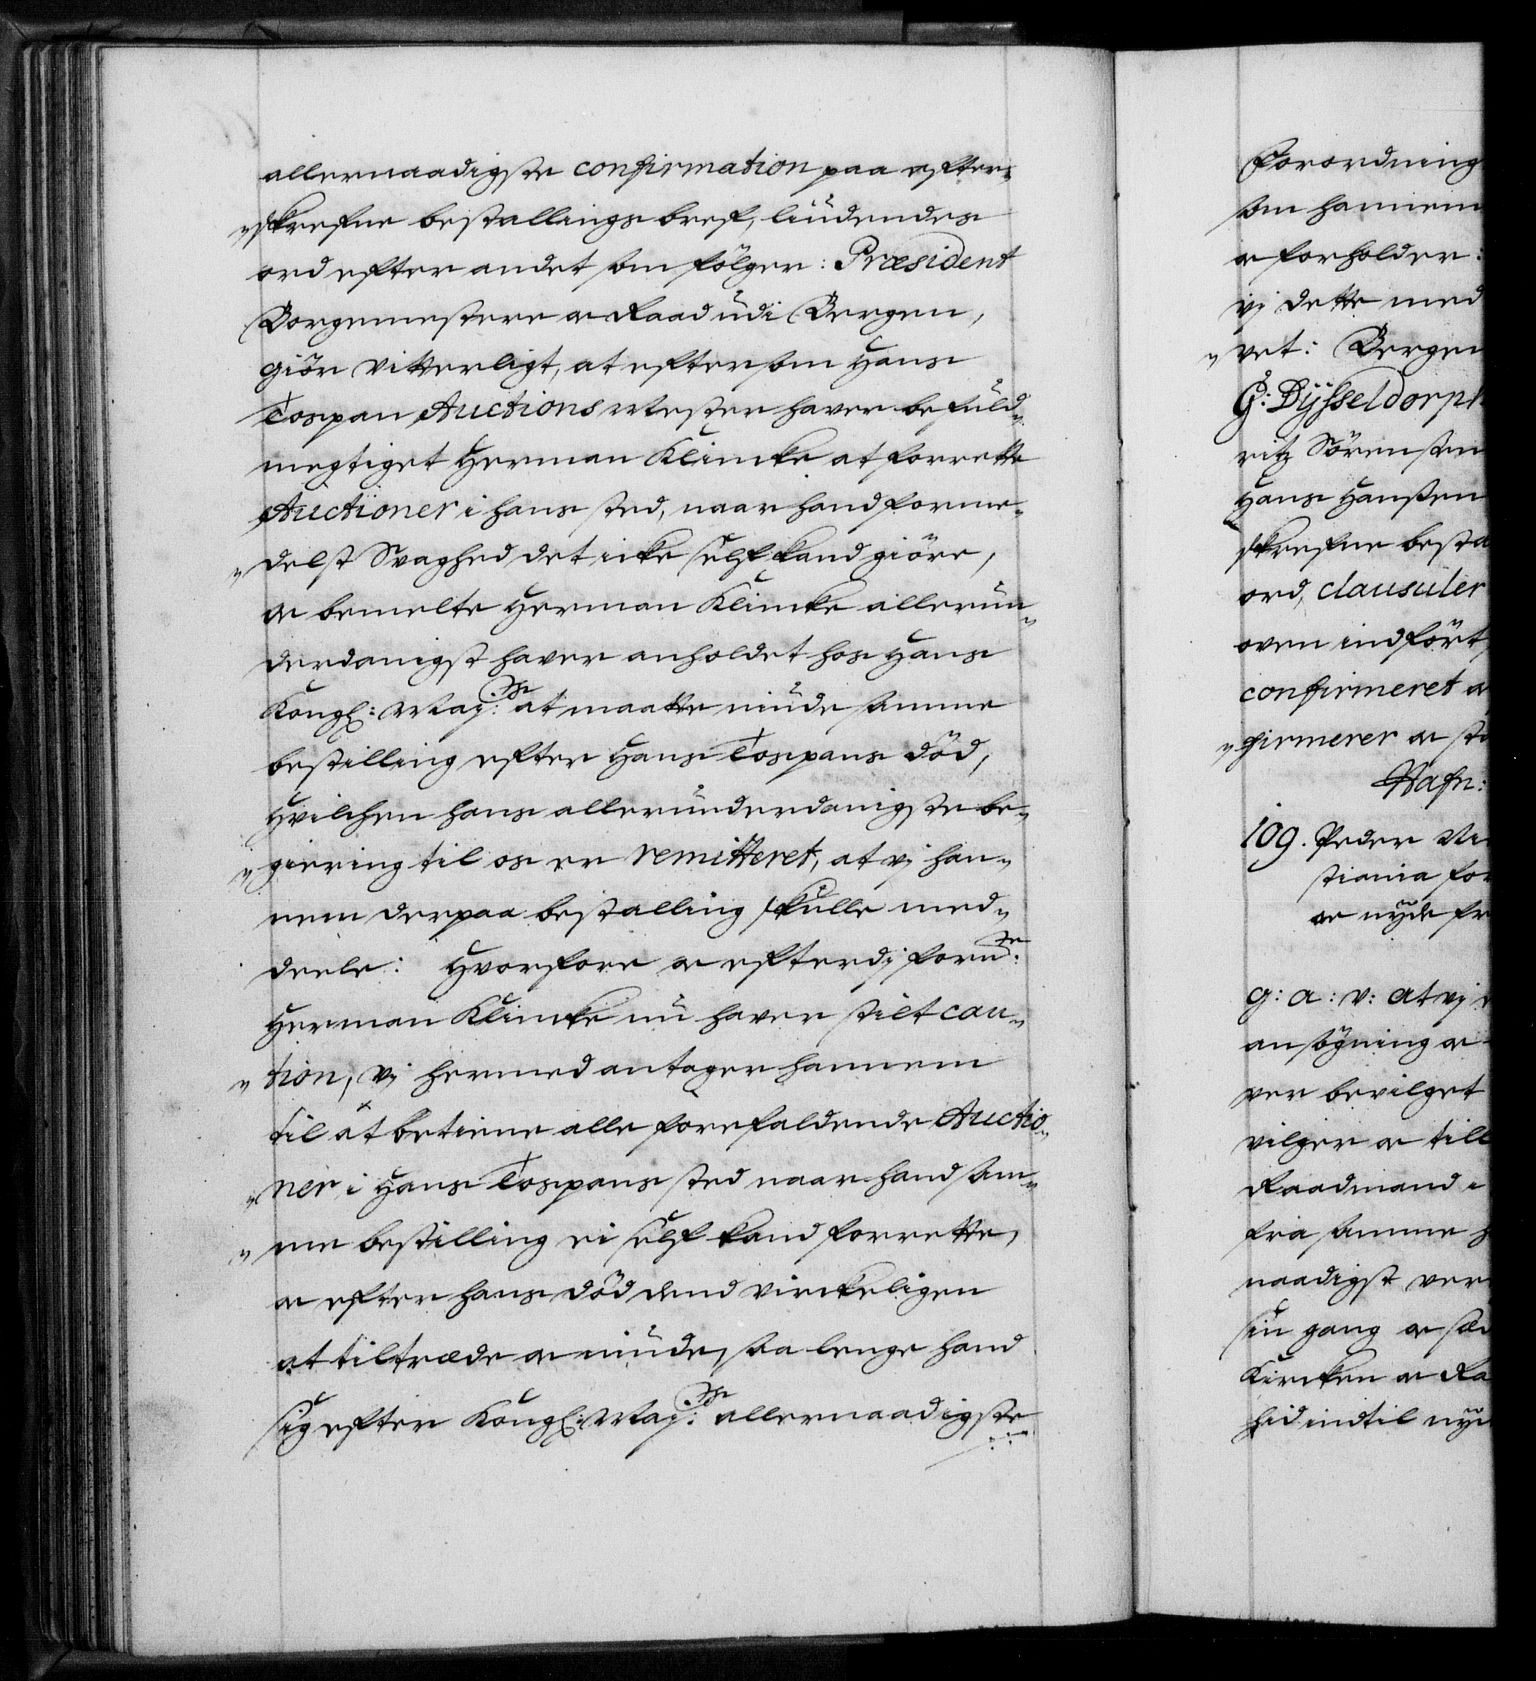 allernaadigste confirmation paa efter„
„skrefne bestallings bref, liudendes
ord efter andet som fölger: Præsident
Borgemestere oc Raad udi Bergen,
giör vitterligt, at eftersom Hans
Tospan Auctions Mester haver befuld„
megtiget Herman Klimke at forrette
Auctioner i hans sted, naar hand forme„
„delst Svaghed det icke self kand giöre,
oc bemelte Herman Klimke allerun„
derdanigst haver anholdet hos Hans
Kongl: May:ts at maatte niude samme
bestilling efter Hans Tospans död,
Hvilchen hans allerunderdanigste be„
„giering til os er remitteret, at vj han„
nem derpaa bestalling skulle med„
deele: Hvorfore oc efterdj forn:te
Herman Klimke nu haver stilt cau„
„tion, vj hermed antager hannem
til at betiene alle forefaldende Auctio„
„ner i Hans Tospans sted naar hand sam„
„me bestilling ei self kand forrette,
oc efter hans död dend virckeligen
at tiltræde oc niude, saa lenge hand
sig efter Kongl: May:ts allernaadigste
Forordning
som hannem
oc forholder:
vj dette med
„vet: Bergen
G: Dysseldorph
ritz Sörensen
Hans Hansen
skrefne besta
ord, clausuler
oven indfört,
confirmeret oc
„firmerer oc st
Hafn:
109. Peder
stiania for
oc nyde fr
G: a: v: at vj
ansögning oc
ver bevilget
vilger oc till
Raadmand i
fra samme
naadigst ver
sin gang oc sæ
Kircken oc Ra
hid indtil nyd